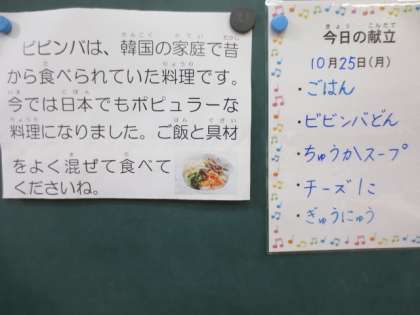 ビビンバは、韓国の家庭で昔
から食べられていた料理です。
今では日本でもポピュラーな
料理になりました。ご飯と具材
をよく混ぜて食べて
くださいね。
今日の献立
10月25日(月)
・ごはん
・ビビンバどん
・ちゅうかスープ
・チーズ1こ
・ぎゅうにゅう